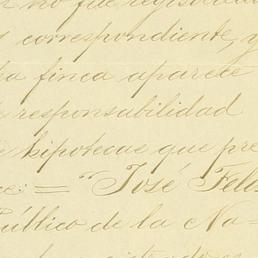 no fue registrad
correspondiente, y
finca aparece
responsabilidad
hipotecas que pre
ce: = "José Feli
Público de la No=